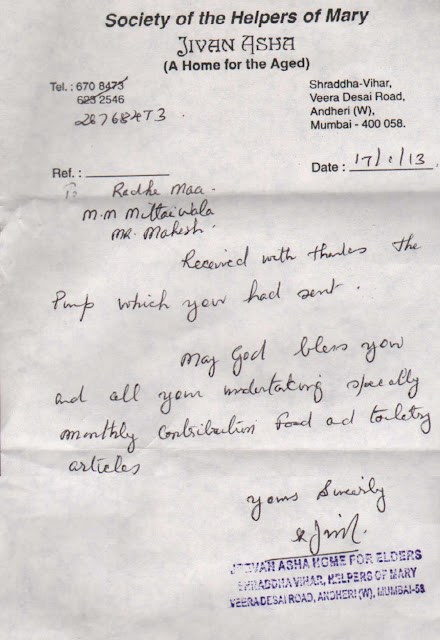 Society of the Helpers of Mary
JIVAN ASHA
(A Home for the Aged)
Tel. : 670 8473
623 2546
26768473
Shraddha-Vihar,
Veera Desai Road,
Andheri (W),
Mumbai - 400 058.
Ref. :
Date : 17/1/13
To Radhe Maa.
M.M Mittaiwala
MR. Mahesh.
Received with thanks the
Pump which your had sent.
May God bless you
and all your undertaking specally
monthly contribution food ad toiletry
articles
yours Sincerly
JEEVAN ASHA HOME FOR ELDERS
SHRADDHA VIHAR, HELPERS OF MARY
VEERA DESAI ROAD, ANDHERI (W), MUMBAI-58